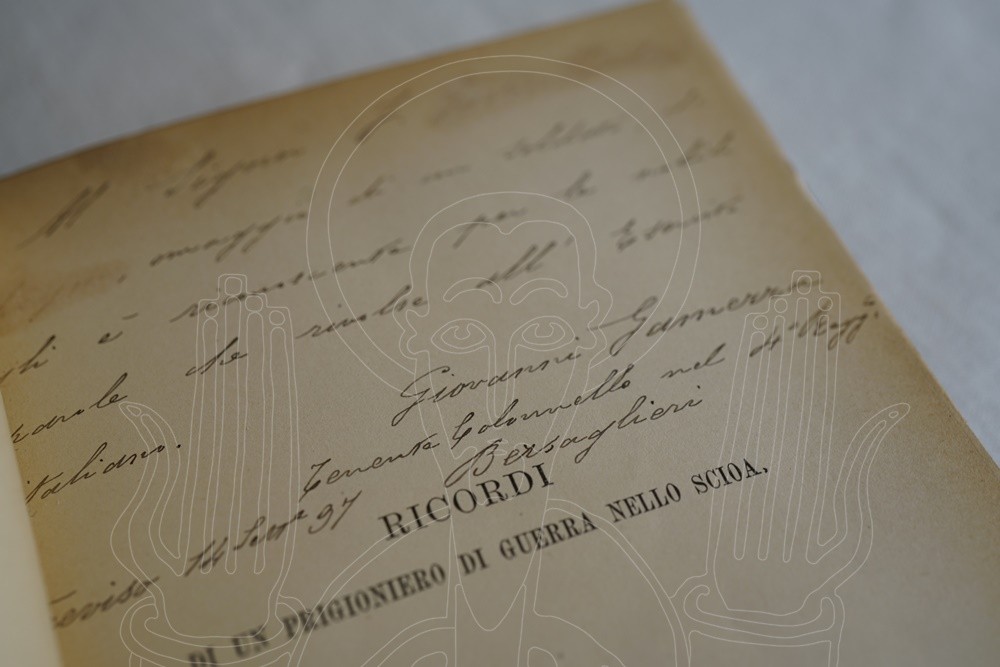 Al Signor
omaggio di un soldato
è riconoscente per le nobili
parole che rivolse all' Esercito
italiano.
Giovanni Gamerra
Tenente Colonnello nel 4° Regg.
Bersaglieri
Treviso 14 97
RICORDI
DI UN PRIGIONIERO DI GUERRA NELLO SCIOA,